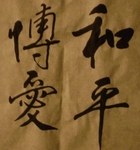 和平
博愛